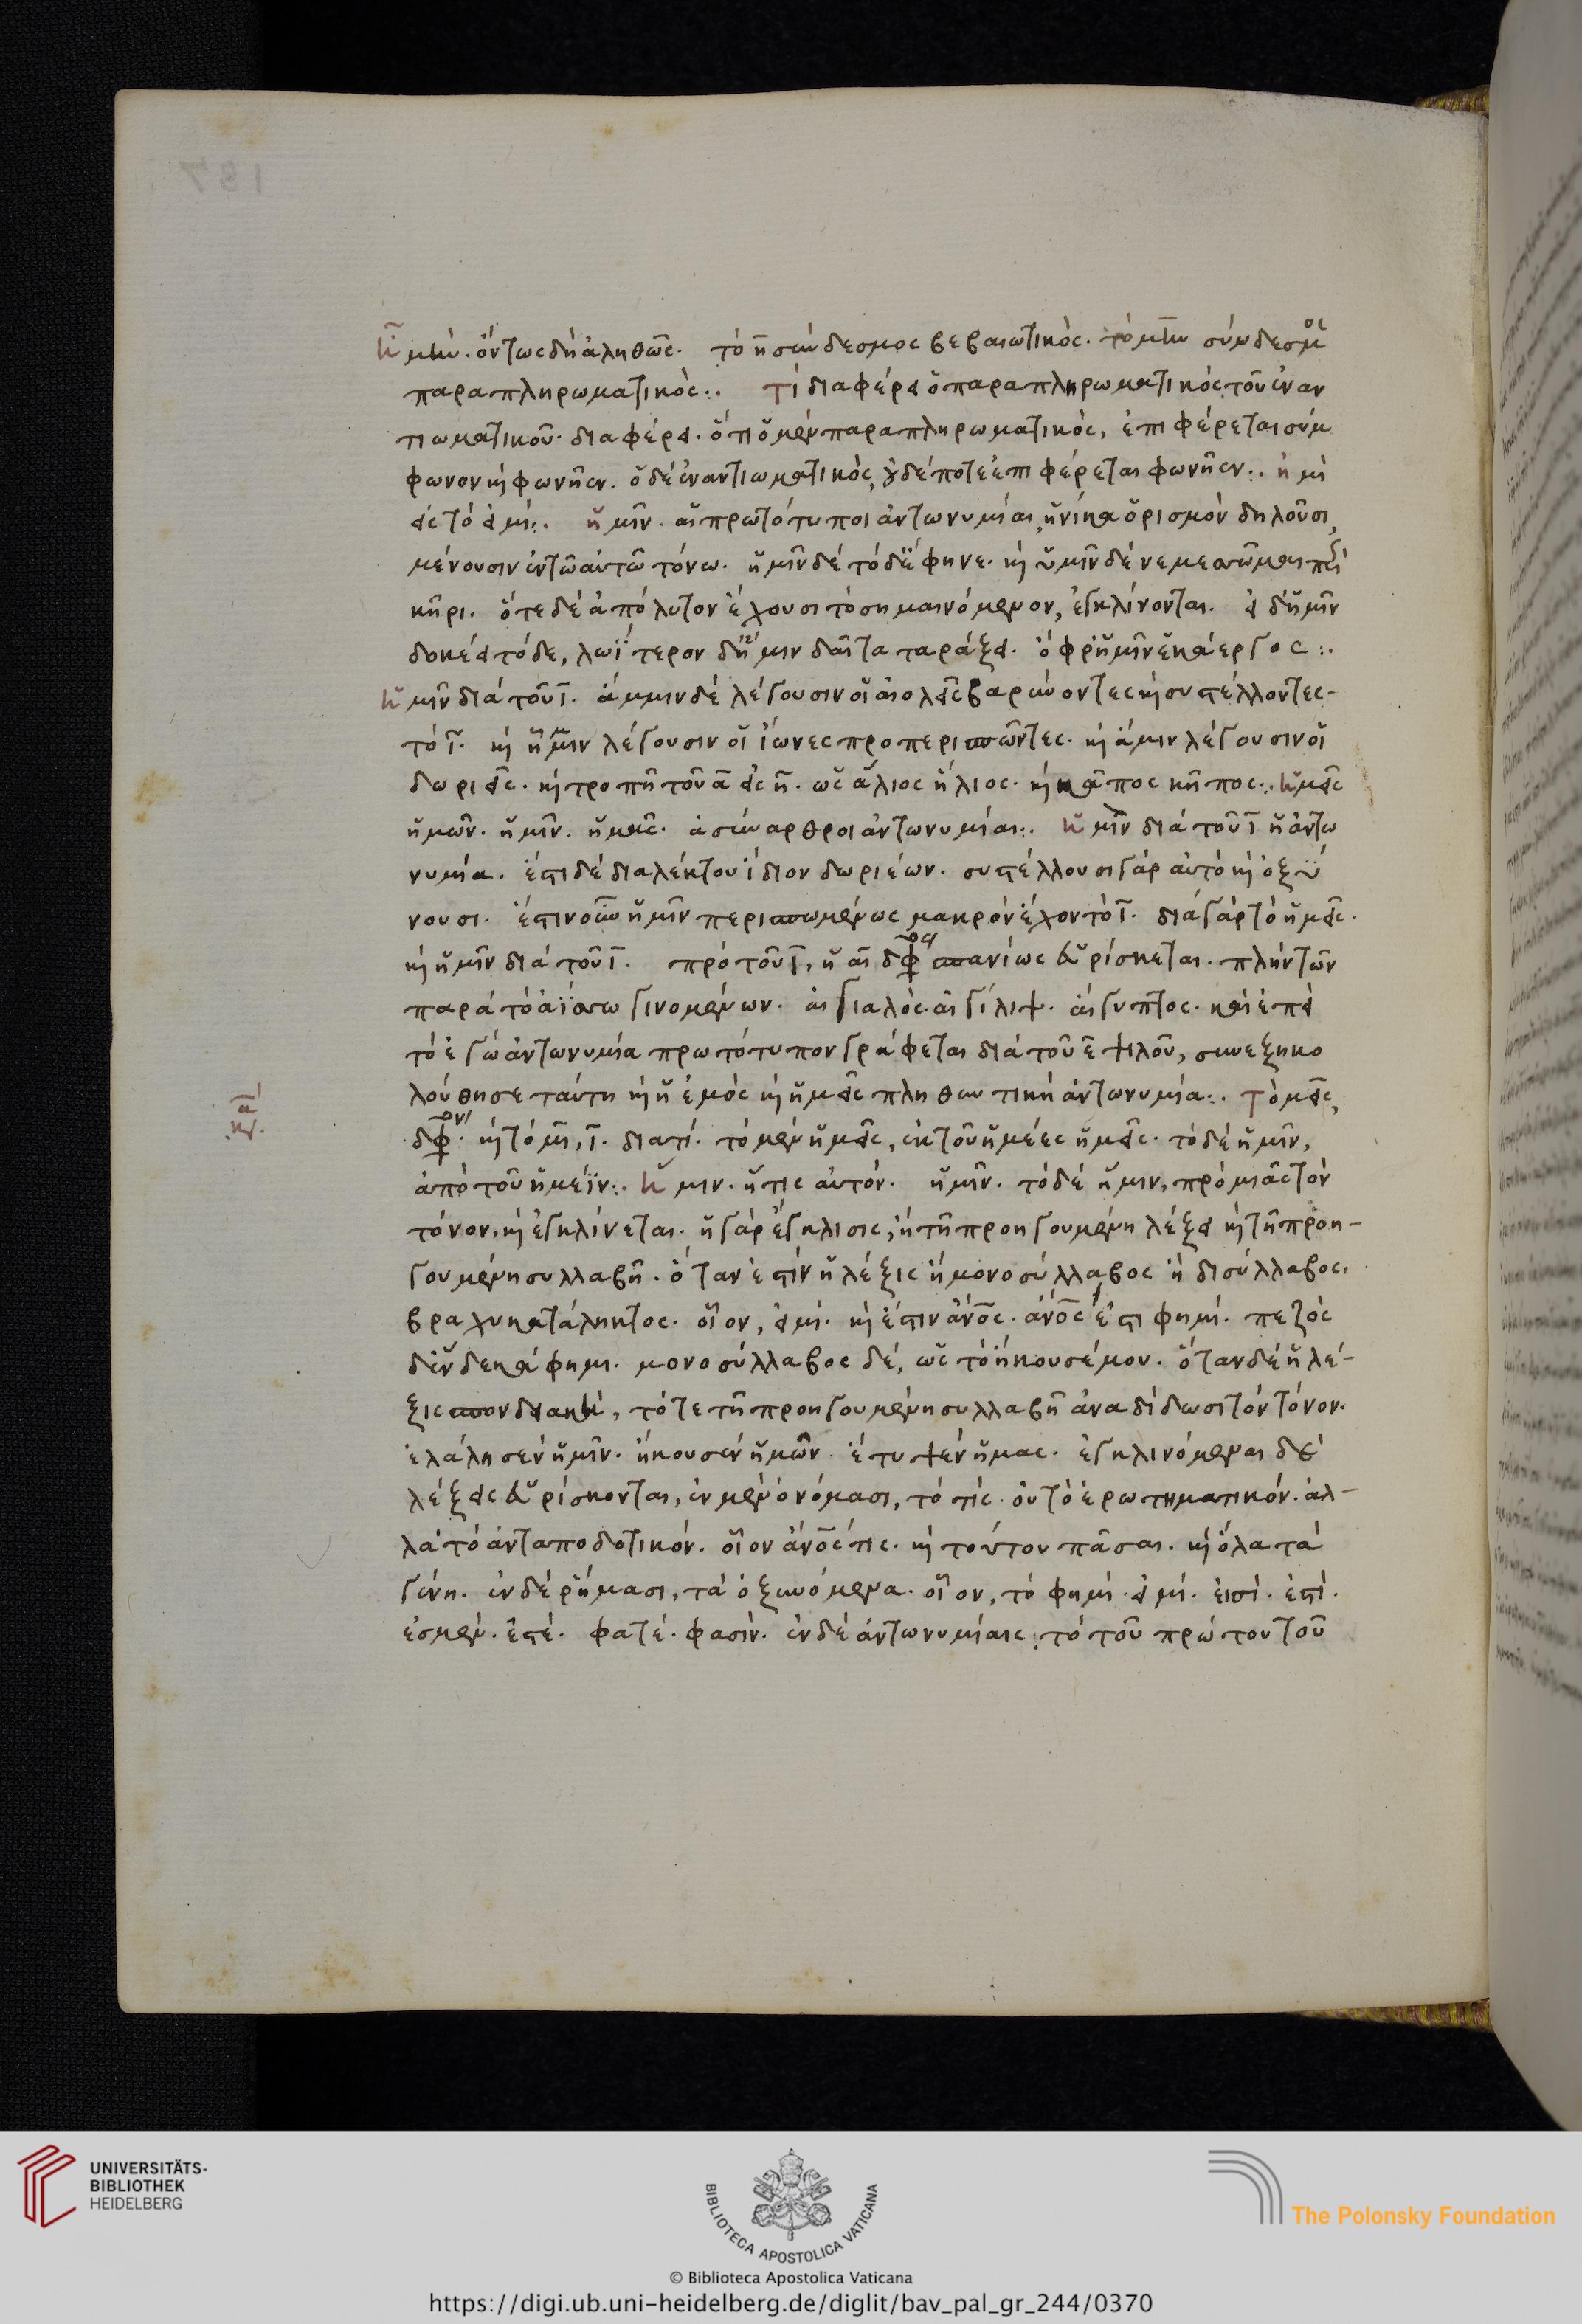 197
Ἦ μὴν. ὄντως δὴ ἀληθῶς. τὸ ἦ σύνδεσμος βεβαιωτικὸς. τὸ μὴν σύνδεσμος
παραπληρωματικὸς:. Τί διαφέρει ὁ παραπληρωματικὸς τοῦ ἐναν
τιωματικοῦ. διαφέρει. ὅτι ὁ μὲν παραπληρωματικὸς, ἐπιφέρεται σύμ
φωνον καὶ φωνῆεν. ὁ δὲ ἐναντιωματικὸς, οὐδέποτε ἐπιφέρεται φωνῆεν:.
εἰς τὸ εἰμί:. ἡμῖν. αἱ πρωτότυποι ἀντωνυμίαι, ἡνίκα ὁρισμὸν δηλοῦσι,
μένουσιν ἐν τῶ αὐτῶ τόνω. ἡμῖν δὲ τόδ' ἔφηνε. καὶ ὑμῖν δὲ νεμεσσῶμαι περὶ
κῆρι. ὅτε δὲ ἀπόλυτον ἔχουσι τὸ σημαινόμενον, ἐγκλίνονται. εἰ δ' ἥμιν
δοκέει τόδε, λωΐτερον δ' ἥμιν δαῖτα ταράξει. ὄφρ' ἥμιν ἑκάεργος:.
Ἡμῖν διὰ τοῦ ι. ἄμμιν δὲ λέγουσιν οἱ αἰολεῖς βαρύνοντες καὶ συστέλλοντες
τὸ ι. καὶ ἧμιν λέγουσιν οἱ ἴωνες προπερισπῶντες. καὶ ἅμιν λέγουσιν οἱ
δωριεῖς. καὶ τροπῆ τοῦ α εἰς η. ὡς ἅλιος ἥλιος. καὶ κᾶπος κῆπος:. Ἡμεῖς
ἡμῶν. ἡμῖν. ἡμᾶς. ἀσύναρθροι ἀντωνυμίαι:. Ἡμῖν διὰ τοῦ ι ἡ ἀντω
νυμία. ἔστι δὲ διαλέκτου ἴδιον δωριέων. συστέλλουσι γὰρ αὐτὸ καὶ ὀξύ
νουσι. ἔστιν οὖν ἡμῖν περισπωμένως μακρὸν ἔχον τὸ ι. διὰ γὰρ τὸ ἡμεῖς.
καὶ ἡμῖν διὰ τοῦ ι. πρὸ τοῦ γ, ἡ αι δίφθογγος σπανίως εὑρίσκεται. πλὴν τῶν
παρὰ τὸ ἀΐσσω γινομένων. αἰγιαλὸς αἰγίλιψ. αἴγυπτος. καὶ ἐπεὶ
τὸ ἐγώ ἀντωνυμία πρωτότυπον γράφεται διὰ τοῦ ε ψιλοῦ, συνεξηκο
λούθησε ταύτη καὶ ἡ ἐμὸς καὶ ἡμεῖς πληθυντικὴ ἀντωνυμία:. Τὸ μεῖς,
δίφθογγον. καὶ τὸ μῖ, ι. διατί. τὸ μὲν ἡμεῖς, ἐκ τοῦ ἡμέες ἡμεῖς. τὸ δὲ ἡμῖν,
ἀπὸ τοῦ ἡμέϊν:. Ἥμιν. ἥτις αὐτόν. ἡμῖν. τὸ δὲ ἥμιν, πρὸ μιᾶς τὸν
τόνον. καὶ ἐγκλίνεται. ἡ γὰρ ἔγκλισις, ἢ τῆ προηγουμένη λέξει καὶ τῆ προη-
γουμένη συλλαβῆ. ὅταν ἐστὶν ἡ λέξις ἢ μονοσύλλαβος ἢ δισύλλαβος,
βραχυκατάληκτος. οἷον, εἰμί. καὶ ἔστιν ἄνος. ἄνος ἐστι φημί. πεζὸς
δ' ἕνδεκά φημι. μονοσύλλαβος δὲ, ὡς τὸ ἤκουσέ μου. ὅταν δὲ ἡ λέ-
ξις σπονδιακὴ, τότε τῆ προηγουμένη συλλαβῆ ἀναδίδωσι τὸν τόνον.
ἐλάλησεν ἡμῖν. ἤκουσεν ἡμῶν. ἔτυψεν ἡμας. ἐγκλινόμεναι δὲ
λέξεις εὑρίσκονται, ἐν μὲν ὀνόμασι, τὸ τίς. οὐ τὸ ἐρωτηματικόν. ἀλ-
λὰ τὸ ἀνταποδοτικόν. οἷον ἄνος τίς. καὶ τούτου πᾶσαι. καὶ ὅλα τὰ
γένη. ἐν δὲ ῥήμασι, τὰ ὀξυνόμενα. οἷον, τὸ φημί. εἰμί. εἰσί. ἐστί.
ἐσμέν. ἐστέ. φατέ. φασίν. ἐν δὲ ἀντωνυμίαις, τὸ τοῦ πρώτου τοῦ
UNIVERSITÄTS-
BIBLIOTHEK
HEIDELBERG
BIBLIOTECA APOSTOLICA VATICANA
The Polonsky Foundation
© Biblioteca Apostolica Vaticana
https://digi.ub.uni-heidelberg.de/diglit/bav_pal_gr_244/0370